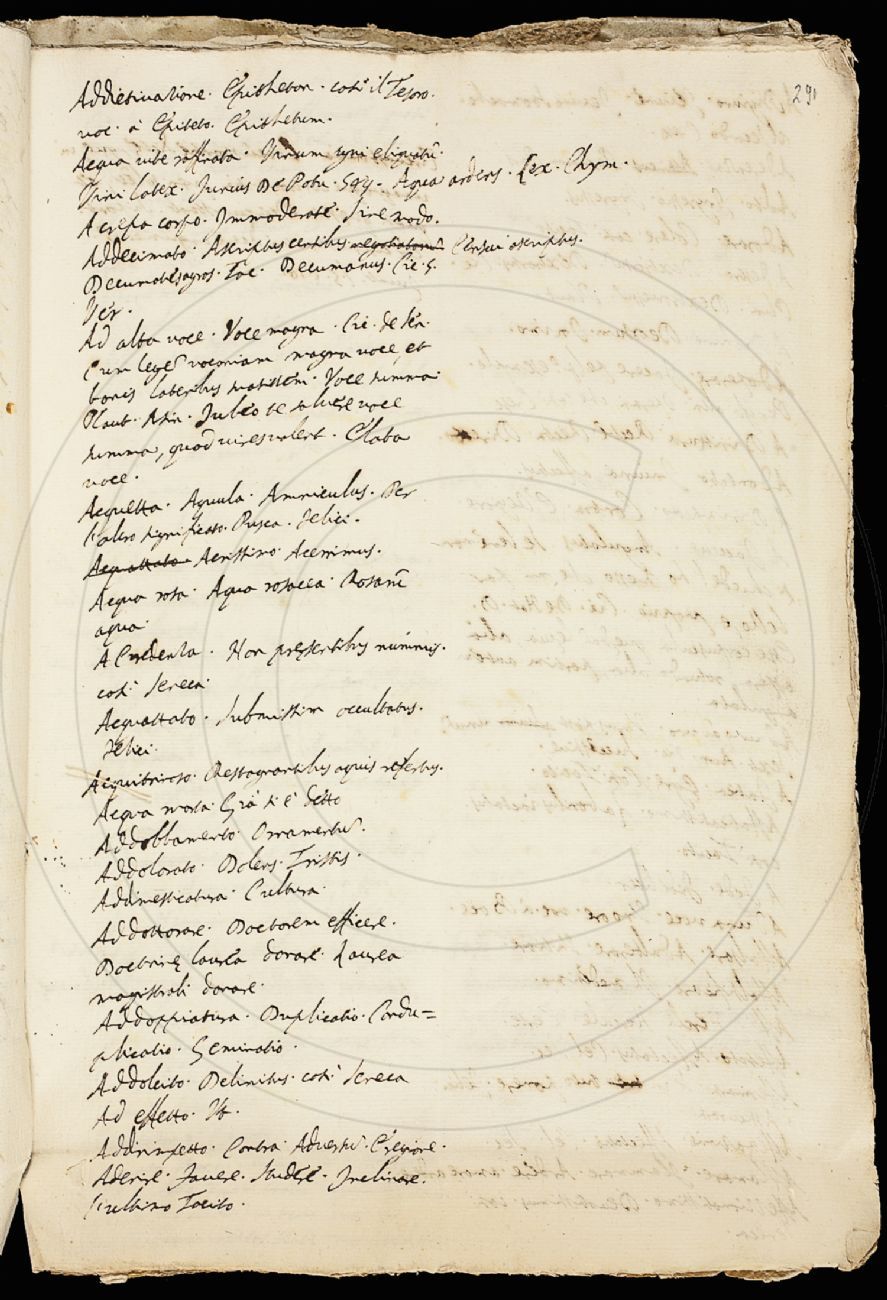 291
Addiettivatione. Epitheton. cosi il Tesoro.
voc. à Epiteto. Epithetum.
Acqua vite raffinata. Vinum igni eliquatũ.
Vini latex. Junius De Potu. 594. Aqua ardens. Lex. Chym.
A crepa corpo. Immoderatè. Sine modo.
Addecimato. Ascriptus censibus Censui ascriptus.
Decumates agros. Tac. Decumanus. Cic. 5.
Ver.
Ad alta voce. Voce magna. Cic. de Sen.
Cum legẽ voconiam magna voce, et
bonis lateribus suasissem. Voce summa.
Plaut. Asin. Jubeo te salvere voce
summa, quod vires valent. Elata
voce.
Acquetta. Aquula. Amniculus. Per
l'altro significato. Pusca. Felici.
Acquattato Acrissimo. Acerrimus.
Acqua rosa. Aqua rosacea. Rosarũ
aqua.
A Credenza. Non præsentibus nummis.
cosi Seneca.
Acquattato. Submissim occultatus.
Felici.
Acquitrinoso. Restagnantibus aquis refertus.
Acqua morta. Già si è detto
Addobbamento. Ornamentũ.
Addolorato. Dolens. Tristis.
Addimesticatura. Cultura.
Addottorare. Doctorem efficere.
Doctrinę laurea donare. Laurea
magistrali donare.
Addoppiatura. Duplicatio. Condu=
plicatio. Geminatio.
Addolcito. Delinitus. cosi Seneca
Ad effetto. Ut.
Addirimpetto. Contra. Adversũ. E regione.
Aderire. Favere. Studere. Inclinare.
l'ultimo Tacito.